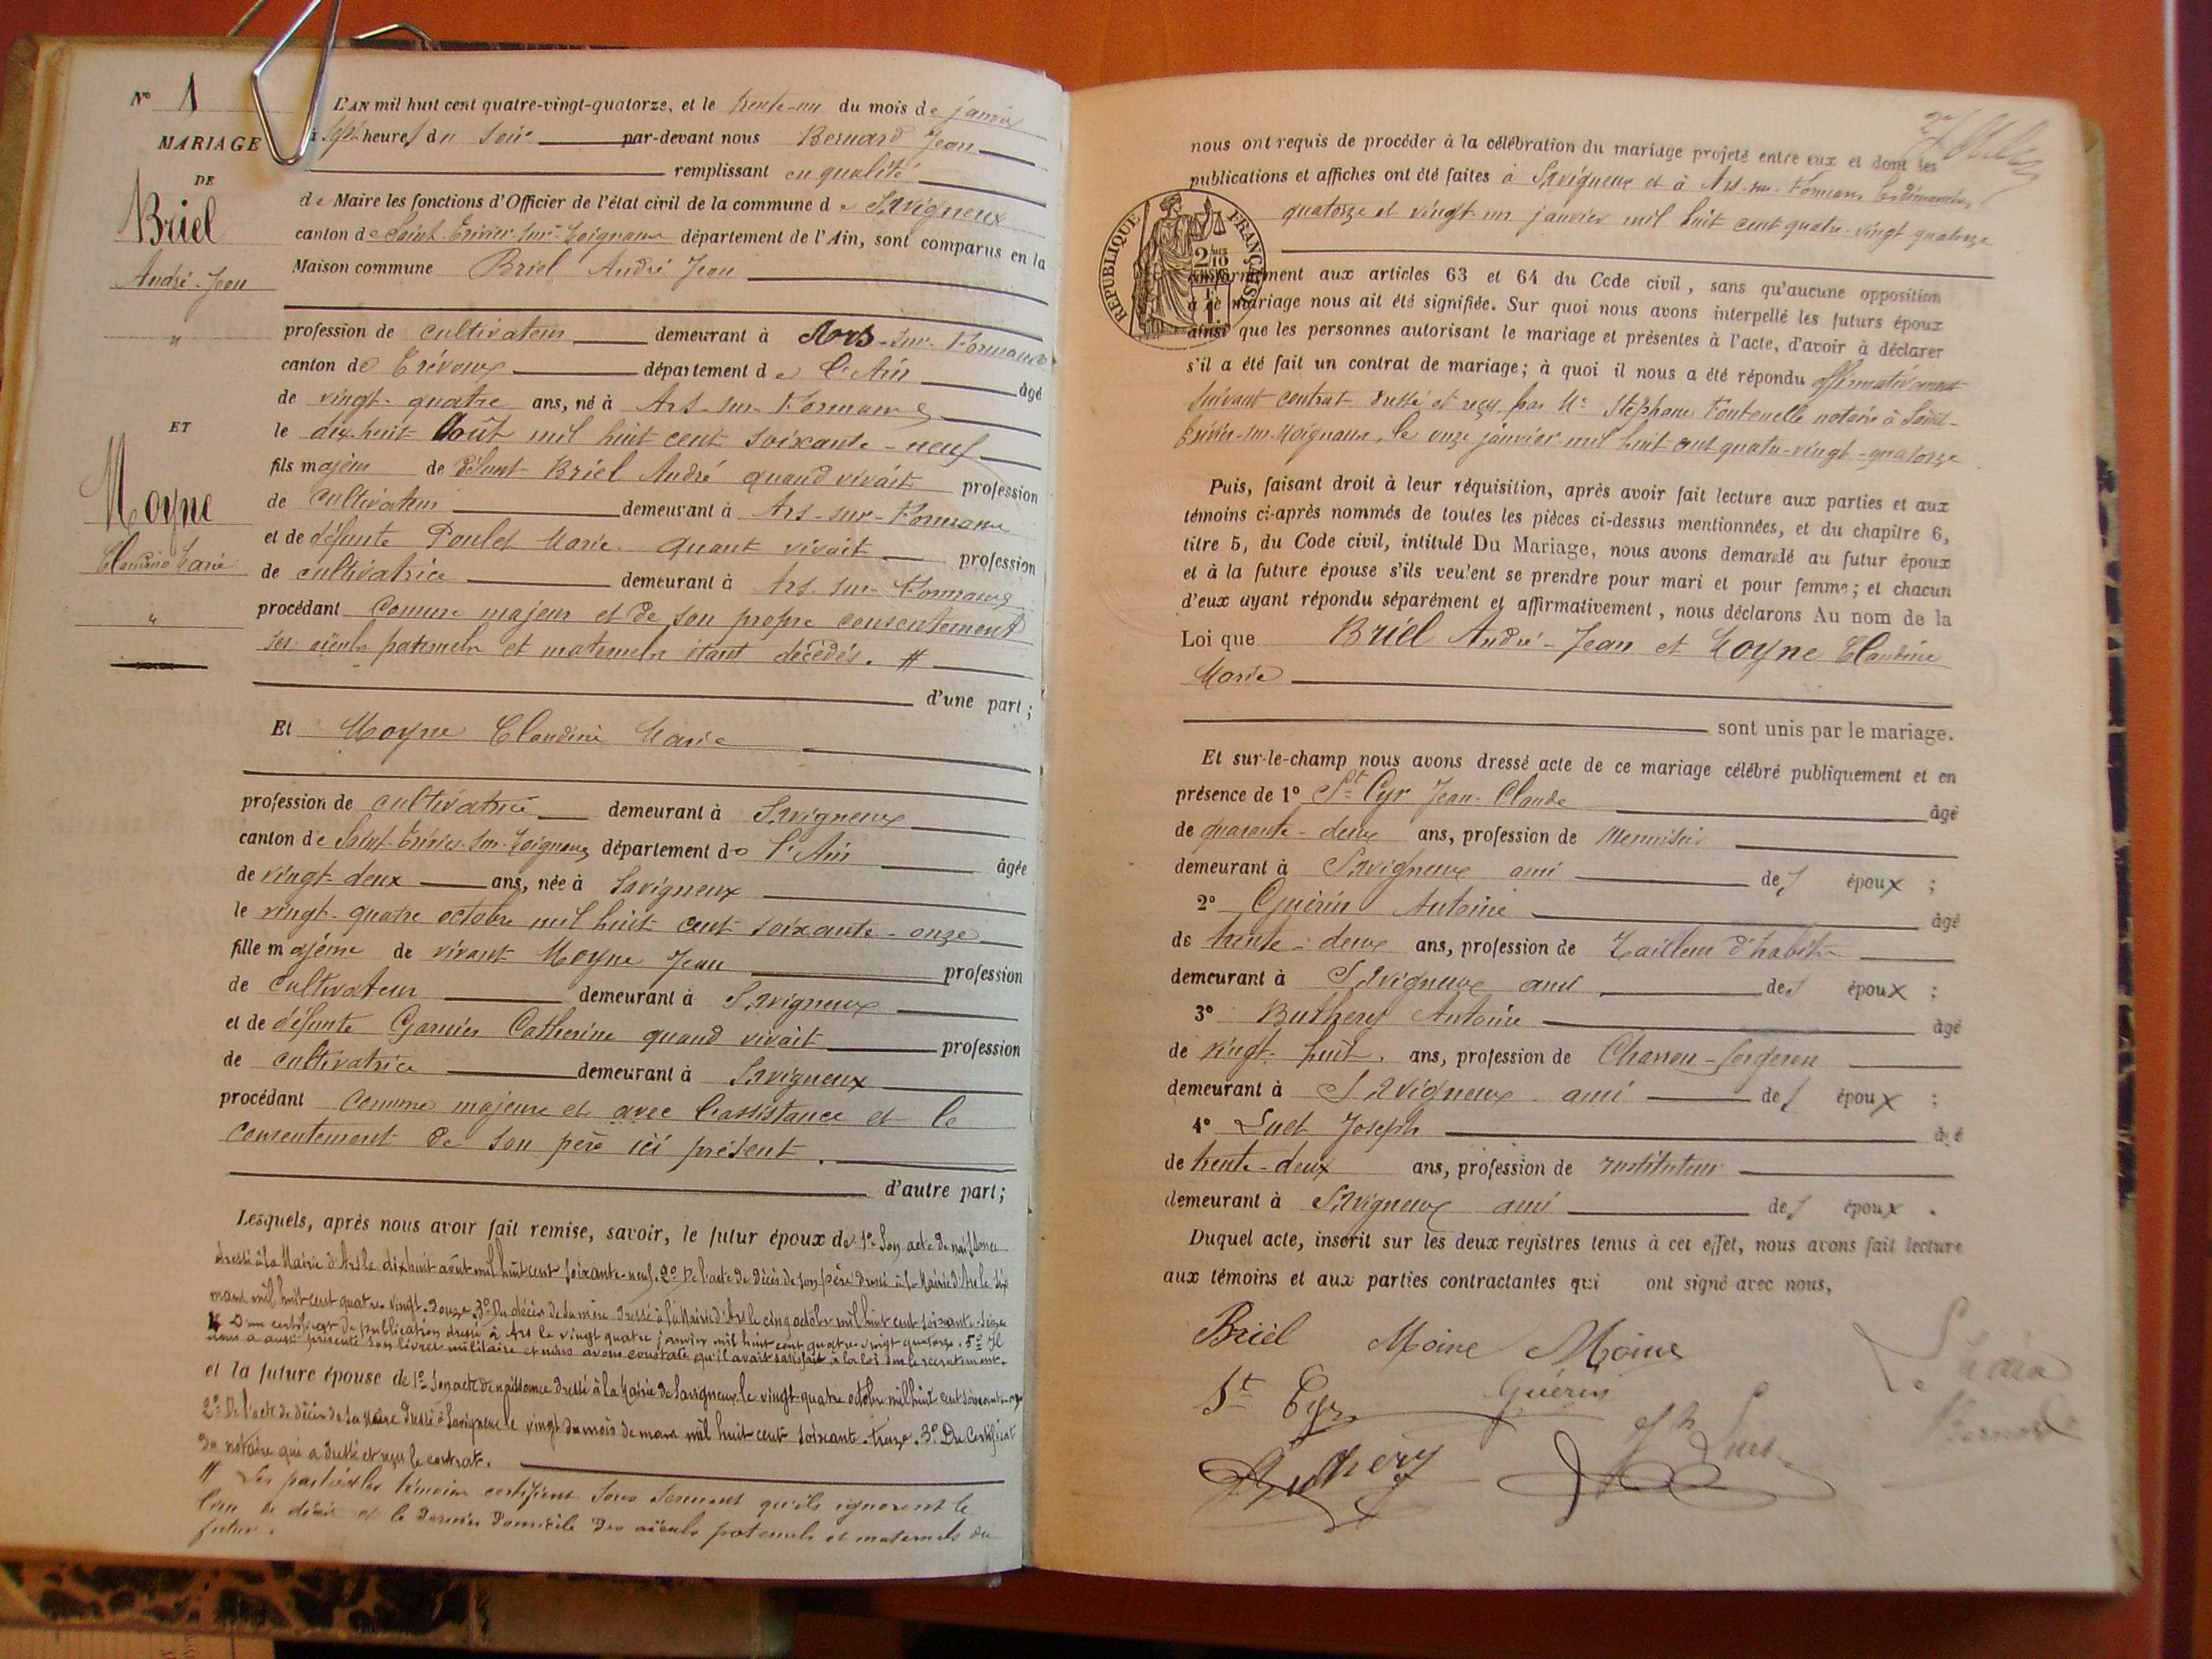 N° 1
MARIAGE
DE
Briel
André-Jean
"
ET
Moyne
Claudine Marie
"
L'AN mil huit cent quatre-vingt-quatorze, et le trente-un du mois de janvier
à sept heures du soir par-devant nous Bernard Jean
remplissant en qualité
de Maire les fonctions d'Officier de l'état civil de la commune de Savigneux
canton de Saint-Trivier-sur-Moignans département de l'Ain, sont comparus en la
Maison commune Briel André Jean
profession de cultivateur demeurant à Ars-sur-Formans
canton de Trévoux département de l'Ain âgé
de vingt-quatre ans, né à Ars-sur-Formans
le dix-huit Août mil huit cent soixante-neuf
fils majeur de défunt Briel André quand vivait profession
de cultivateur demeurant à Ars-sur-Formans
et de défunte Poulet Marie quant vivait profession
de cultivatrice demeurant à Ars-sur-Formans
procédant comme majeur et de son propre consentement
ses aïeuls paternels et maternels étant décédés. #
d'une part;
Et Moyne Claudine Marie
profession de cultivatrice demeurant à Savigneux
canton de Saint-Trivier-sur-Moignans département de l'Ain âgée
de vingt-deux ans, née à Savigneux
le vingt-quatre octobre mil huit cent soixante-onze
fille majeure de vivant Moyne Jean profession
de cultivateur demeurant à Savigneux
et de défunte Garnier Catherine quand vivait profession
de cultivatrice demeurant à Savigneux
procédant comme majeure et avec l'assistance et le
consentement de son père ici présent.
d'autre part;
Lesquels, après nous avoir fait remise, savoir, le futur époux de 1° Son acte de naissance
dressé à la Mairie d'Ars le dix huit août mil huit cent soixante-neuf. 2° De l'acte de décès de son père dressé à la Mairie d'Ars le six
mars mil huit cent quatre-vingt-douze. 3° Du décès de sa mère dressé à la Mairie d'Ars le cinq octobre mil huit cent soixante-seize
4° D'un certificat de publication dressé à Ars le vingt quatre janvier mil huit cent quatre vingt quatorze. 5° Il
nous a aussi présenté son livret militaire et nous avons constaté qu'il avait satisfait à la loi sur le recrutement.
et la future épouse de 1° Son acte de naissance dressé à la Mairie de Savigneux le vingt-quatre octobre mil huit cent soixante-onze
2° De l'acte de décès de sa mère dressé à Savigneux le vingt du mois de mars mil huit cent soixante-treize. 3° Du Certificat
du notaire qui a dressé et reçu le contrat.
# Les parties et les témoins certifient sous serment qu'ils ignorent le
lieu de décès et le dernier domicile des aïeuls paternels et maternels du
futur.
nous ont requis de procéder à la célébration du mariage projeté entre eux et dont les
publications et affiches ont été faites à Savigneux et à Ars-sur-Formans les dimanches
quatorze et vingt-un janvier mil huit cent quatre-vingt quatorze
RÉPUBLIQUE FRANÇAISE
conformément aux articles 63 et 64 du Code civil, sans qu'aucune opposition
à ce mariage nous ait été signifiée. Sur quoi nous avons interpellé les futurs époux
ainsi que les personnes autorisant le mariage et présentes à l'acte, d'avoir à déclarer
s'il a été fait un contrat de mariage; à quoi il nous a été répondu affirmativement
suivant contrat dressé et reçu par Me Stéphane Fontenelle notaire à Saint-
Trivier-sur-Moignans, le onze janvier mil huit cent quatre-vingt-quatorze
Puis, faisant droit à leur réquisition, après avoir fait lecture aux parties et aux
témoins ci-après nommés de toutes les pièces ci-dessus mentionnées, et du chapitre 6,
titre 5, du Code civil, intitulé Du Mariage, nous avons demandé au futur époux
et à la future épouse s'ils veulent se prendre pour mari et pour femme; et chacun
d'eux ayant répondu séparément et affirmativement, nous déclarons Au nom de la
Loi que Briel André-Jean et Moyne Claudine
Marie
sont unis par le mariage.
Et sur-le-champ nous avons dressé acte de ce mariage célébré publiquement et en
présence de 1° St Cyr Jean-Claude âgé
de quarante-deux ans, profession de Menuisier
demeurant à Savigneux ami des époux ;
2° Guérin Antoine âgé
de trente-deux ans, profession de Tailleur d'habits
demeurant à Savigneux ami des époux ;
3° Buthery Antoine âgé
de vingt-huit ans, profession de Charron-forgeron
demeurant à Savigneux ami des époux ;
4° Luet Joseph âgé
de trente-deux ans, profession de instituteur
demeurant à Savigneux ami des époux .
Duquel acte, inscrit sur les deux registres tenus à cet effet, nous avons fait lecture
aux témoins et aux parties contractantes qui ont signé avec nous,
Briel Moine Moine
St Cyr Guérin
Buthery Jh Luet Bernard